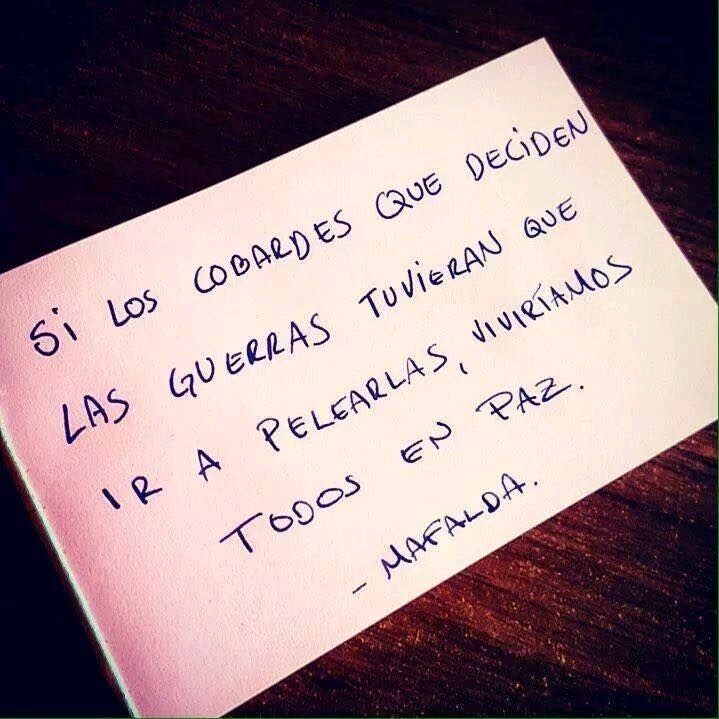 Si LOS COBARDES QUE DECIDEN
LAS GUERRAS TUViERAN QUE
IR A PELEARLAS, VIVIRÍAMOS
TODOS EN PAZ.
- MAFALDA.